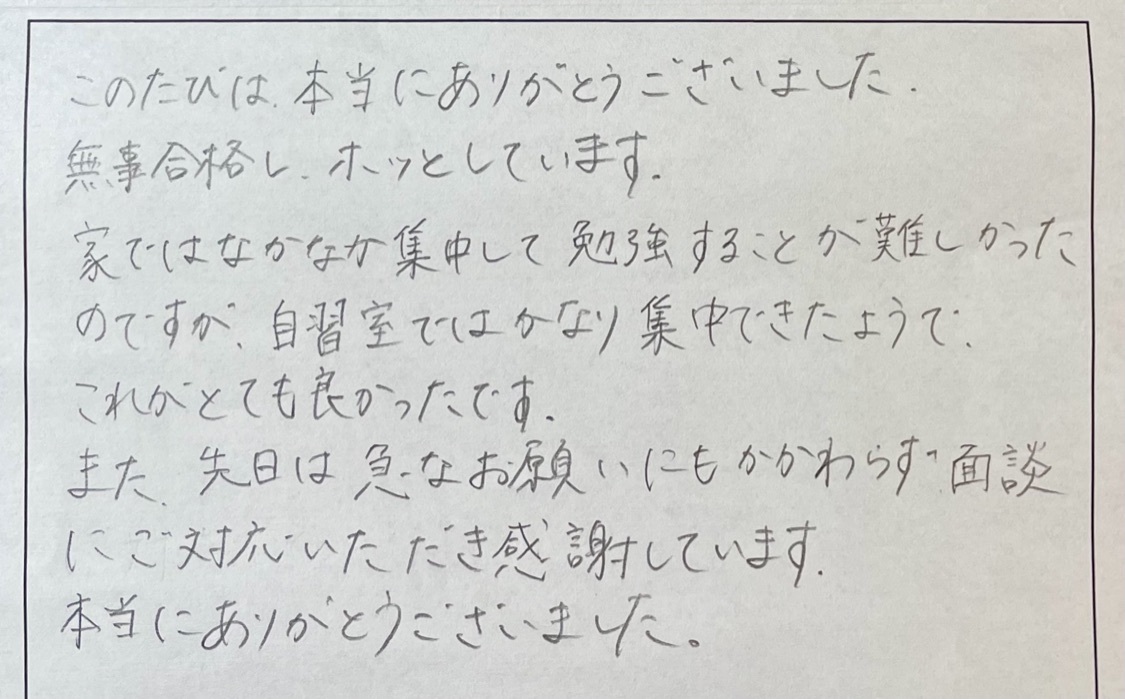 このたびは、本当にありがとうございました.
無事合格し、ホッとしています.
家ではなかなか集中して勉強することが難しかった
のですが、自習室ではかなり集中できたようで、
これがとても良かったです.
また、先日は急なお願いにもかかわらず、面談
にご対応いただき感謝しています.
本当にありがとうございました。